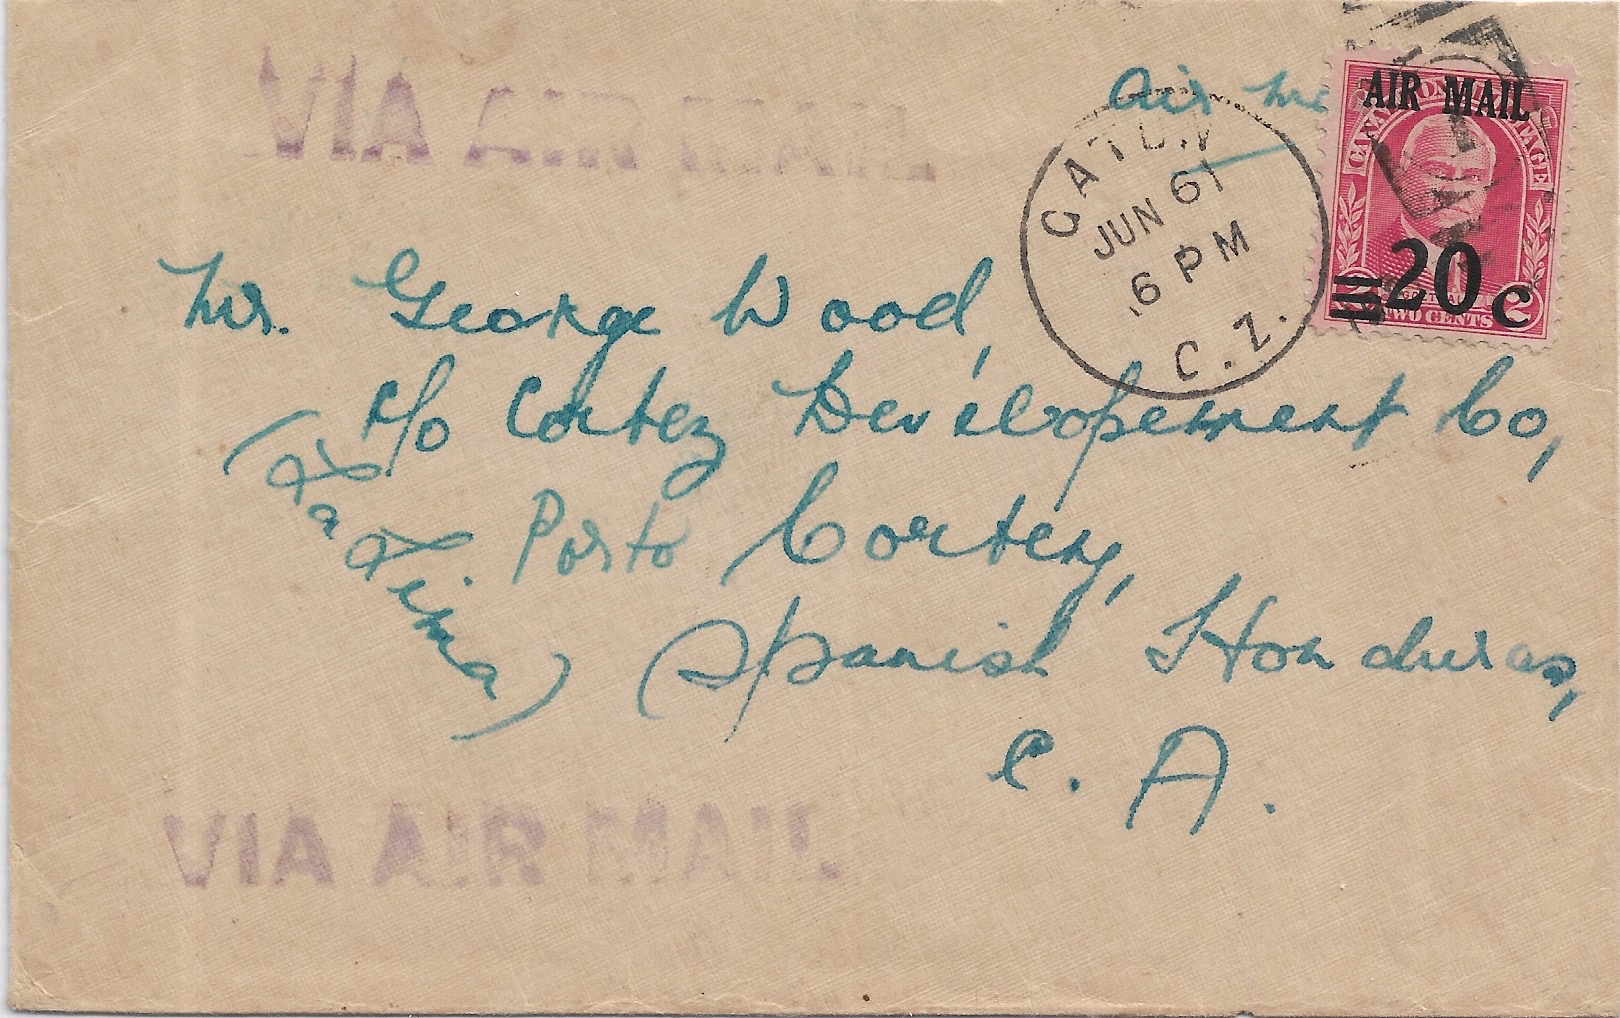 VIA AIR MAIL
Air
AIR MAIL
CANAL ZONE POSTAGE
20 c
TWO CENTS 2
GATUN
JUN 6
6 PM
C.Z.
Mr. George Wood,
c/o Cortez Development Co,
(La Lima)
Porto Cortez,
Spanish Honduras,
C. A.
VIA AIR MAIL